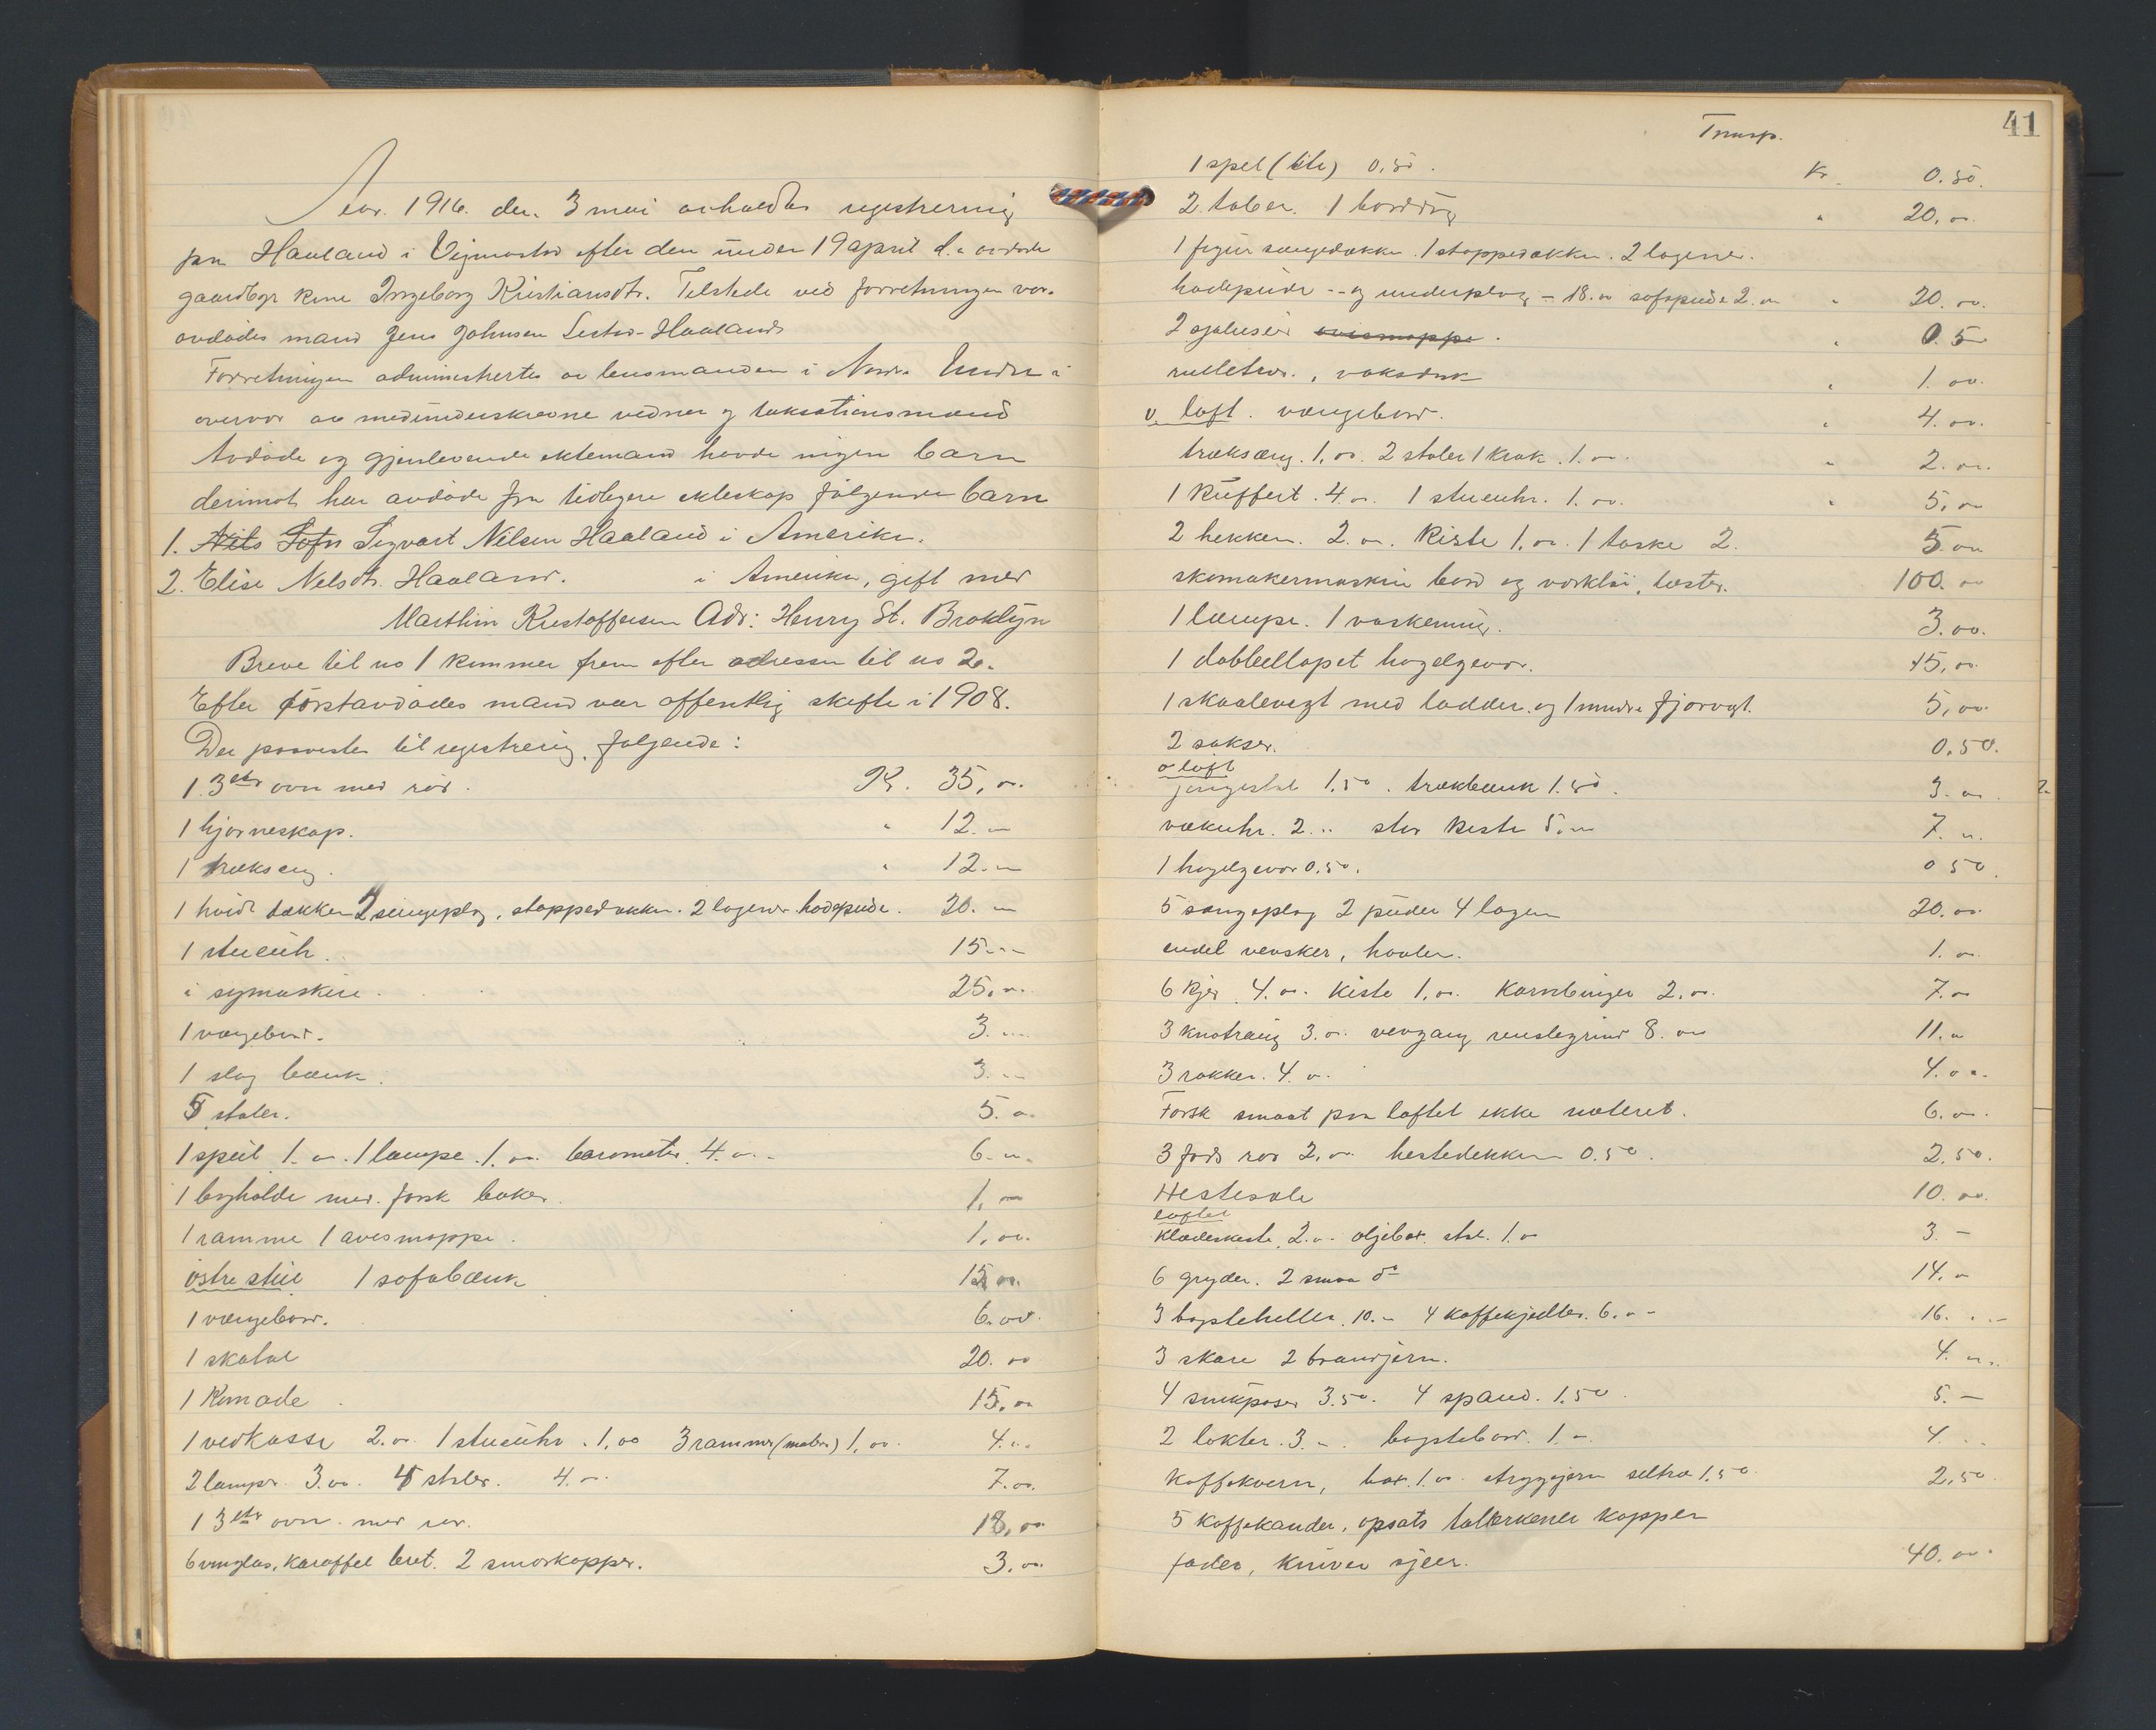 Aar. 1916. den. 3 mai avholdtes registrering
paa Haaland i Vigmostad efter den under 19 april d. a avdøde
gaardbgr kone Ingeborg Kristiansdtr. Tilstede ved forretningen var.
avdødes mand Jens Johnsen Haaland
Forretningen administrertes av lensmanden i Nordre Undal i
overvær av medunderskrevne vidner og taksationsmænd
Avdøde og gjenlevende ektemand havde ingen barn
derimot har avdøde fra tidligere ekteskap følgende barn
1. Nils Sofn Sigvart Nilsen Haaland i Amerika.
2. Elise Nelsdtr. Haaland. i Amerika, gift med
Marthin Kristoffersen Adr: Henry St. Broklyn
Breve til no 1 kommer frem efter adressen til no 2.
Efter førstavdødes mand var offentlig skifte i 1908.
Der paavistes til registrering følgende:
1. 3 etr ovn med rör. Kr. 35,00.
1 hjørneskap. " 12.00
1 trækseng. " 12.00
1 hvidt dækken 2 sengeplag, stoppedækken. 2 lagener. hodepude. 20.00
1 stueuhr. 15.00
1 symaskin. 25,00.
1 vængebord. 3.00
1 slag bænk. 3.00
5 stoler. 5.00
1 speil 1.00. 1 lampe. 1.00. barometer 4.00. 6.00
1 bogholde med forsk bøker. 1,00
1 ramme 1 avismappe. 1,00.
östre stue 1 sofabænk 15.00.
1 vængebord. 6.00.
1 skatol 20.00
1 Komode 15.00
1 vedkasse 2.00. 1 stueuhr. 1,00 3 rammer (maleri) 1,00. 4.00
2 lamper. 3.00. 4 stoler. 4.00. 7.00.
1 3 etr ovn med rør. 18,00
6 vinglas, karaffel bret. 2 smørkopper. 3.00.
41
Transp.
1 spel (lite) 0,50. Kr. 0.50.
2 taber. 1 borddug " 20,00.
1 figur sengedækken. 1 stoppedækken. 2 lagener.
hodepude -- og underplag - 18.00 sofapude 2.00 " 20.00.
2 sjalusier avismappe. " 0.5
rulletræ., voksduk " 1.00.
v. loft. vængebord. " 4.00.
trækseng. 1,00. 2 stoler 1 krak. 1.00. " 2.00.
1 kuffert. 4.00. 1 stueuhr. 1.00. " 5,00
2 hekken. 2.00. Kiste 1.00. 1 taske 2. 5.00
skomakermaskin bord og verktøi, læster. 100.00
1 lampe. 1 vaskeming. 3.00.
1 dobbeltløpet haglgevær. 15,00.
1 skaalevegt med lodder. og 1 mindre fjørvegt. 5,00.
2 sakser. 0,50.
ö loft
gyngestol 1.50. trækbænk 1.50. 3.00.
vækuhr. 2.. stor kiste 5.00 7.00.
1 haglgevær 0.50. 0 50.
5 sengeplag 2 puder 4 lagen 20.00.
endel vevsker, hovler. 1.00.
6 kjer 4.00. Kiste 1,00. Kornbinger 2.00. 7.00
3 knotraug 3.00. vevgang renslegrind 8.00 11.00
3 rokker. 4.00. 4.00.
Forsk smaat paa loftet ikke noteret. 6.00.
3 fods rev 2.00. hestedekken 0.50. 2.50.
Hestesæle 10.00.
loftet
Klædeskiste. 2.00. oljebox. stol. 1.00 3.-
6 gryder. 2 smaa do 14.00
3 bagstehelles. 10.- 4 kaffekjedler. 6.00- 16...-
3 skare 2 brandjern. 4.00.
4 sinkposer 3.50. 4 spand. 1.50. 5.-
2 lokter. 3.-. bagstebord. 1.-. 4...
Kaffekvern, box. 1.00. strygejern seltræ 1.50 2,50.
5 kaffekander, opsats tallerkener kopper
fader, kniver sjeer. 40.00.